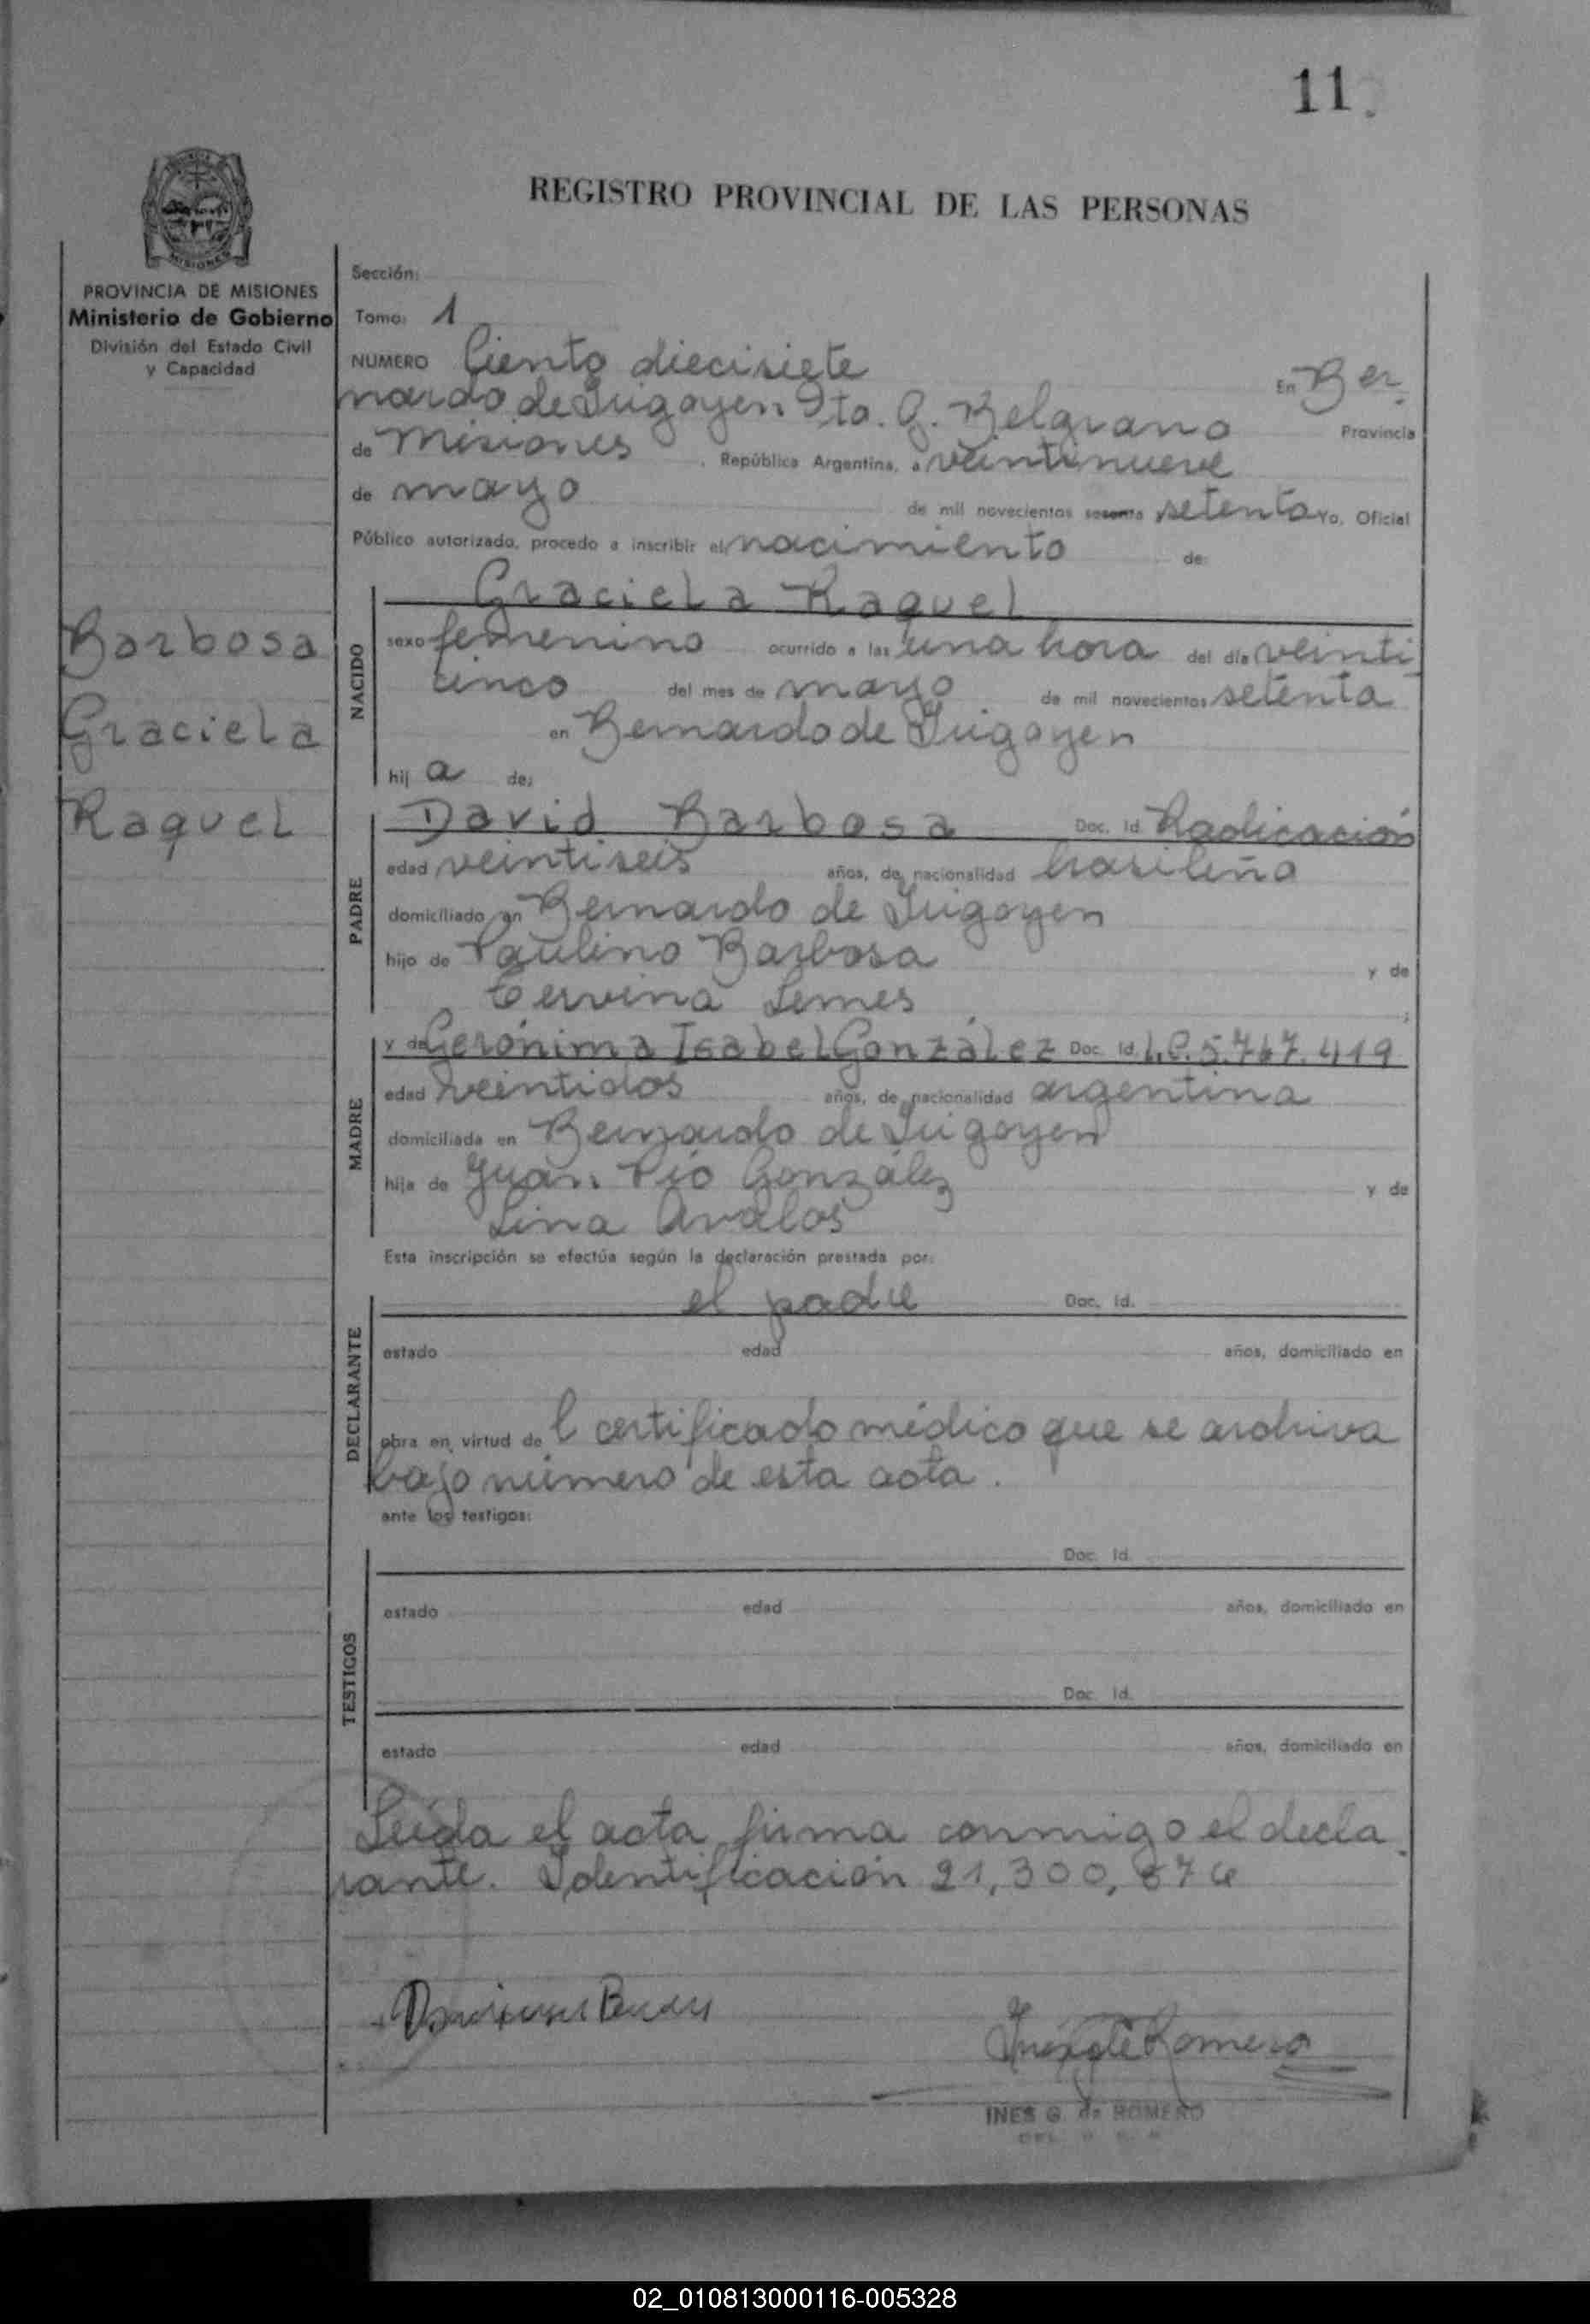 11
REGISTRO PROVINCIAL DE LAS PERSONAS
MISIONES
PROVINCIA DE MISIONES
Ministerio de Gobierno
División del Estado Civil
y Capacidad
Barbosa
Graciela
Raquel
Sección:
Tomo: 1
NUMERO Ciento diecisiete En Ber
nardo de Irigoyen Dto. G. Belgrano Provincia
de Misiones, República Argentina, a veintinueve
de mayo de mil novecientos sesenta setenta Yo, Oficial
Público autorizado, procedo a inscribir el nacimiento de:
NACIDO
Graciela Raquel
sexo femenino ocurrido a las una hora del día veinti
cinco del mes de mayo de mil novecientos setenta
en Bernardo de Irigoyen
hij a de:
PADRE
David Barbosa Doc. Id. Radicación
edad veintiseis años, de nacionalidad brasileña
domiciliado en Bernardo de Irigoyen
hijo de Paulino Barbosa y de
Cervina Lemes ;
MADRE
y de Gerónima Isabel González Doc. Id. L.C. 5.767.419
edad veintidos años, de nacionalidad argentina
domiciliada en Bernardo de Irigoyen
hija de Juan Pío González y de
Lina Avalos
Esta inscripción se efectúa según la declaración prestada por:
DECLARANTE
el padre Doc. Id.
estado edad años, domiciliado en
obra en virtud de l certificado médico que se archiva
bajo número de esta acta.
ante los testigos:
TESTIGOS
Doc. Id.
estado edad años, domiciliado en
Doc. Id.
estado edad años, domiciliado en
Leída el acta firma conmigo el decla
rante. Identificación 21,300,876
Romero
INES G. de ROMERO
02_010813000116-005328